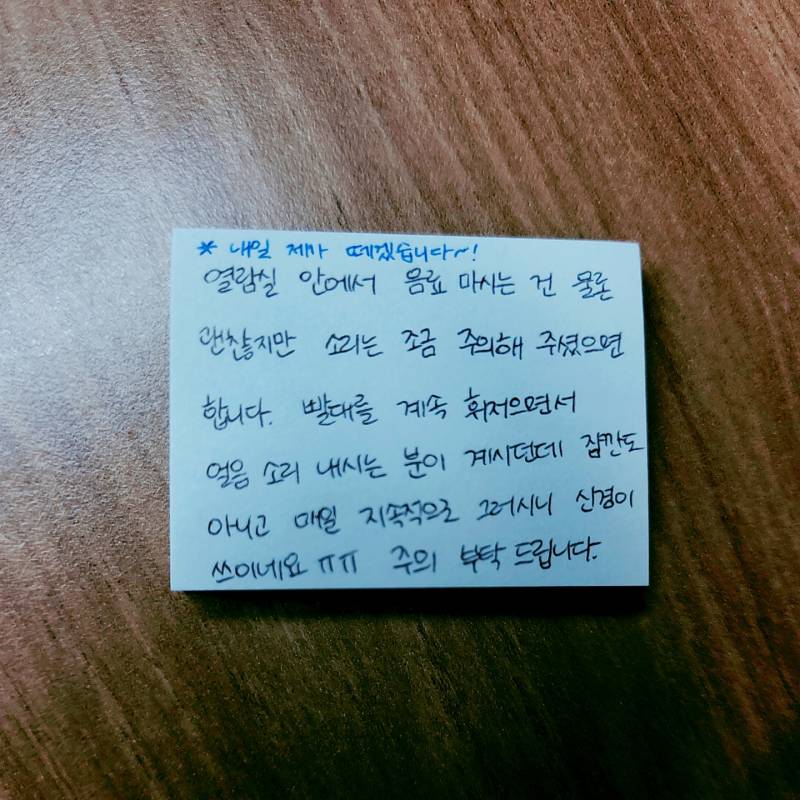 * 내일 제가 떼겠습니다~!
열람실 안에서 음료 마시는 건 물론
괜찮지만 소리는 조금 주의해 주셨으면
합니다. 빨대를 계속 휘저으면서
얼음 소리 내시는 분이 계시던데 잠깐도
아니고 매일 지속적으로 그러시니 신경이
쓰이네요 ㅠㅠ 주의 부탁드립니다.